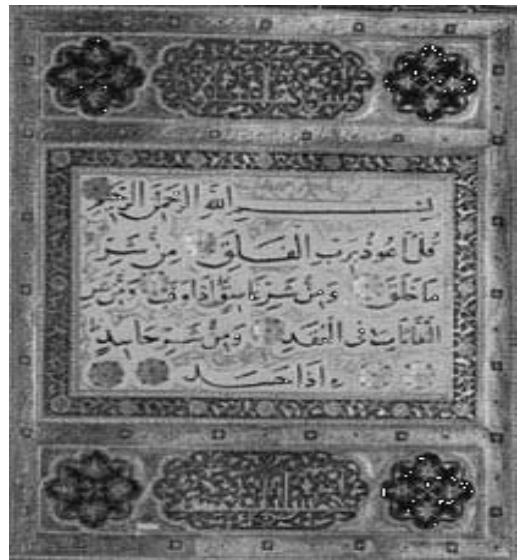 بسم الله الرحمن الرحيم
قل اعوذ برب الفلق من شر
ما خلق ومن شر غاسق اذا وقب ومن شر
النفاثات في العقد ومن شر حاسد
اذا حسد